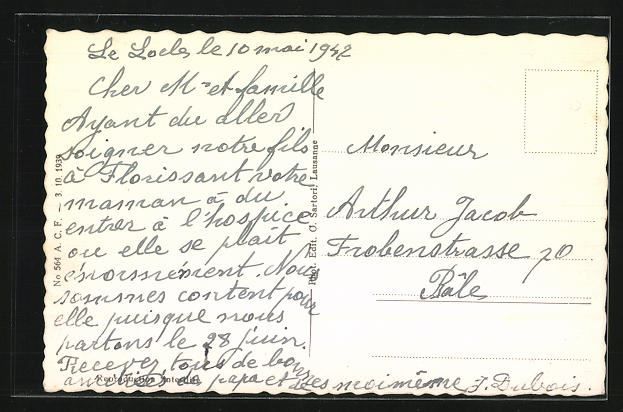 Le Locle, le 10 mai 1942
Cher Mr et famille
Ayant du aller
soigner notre fils
à Florissant votre
maman à du
entrer à l'hospice
ou elle se plait
énormément. Nous
sommes content pour
elle puisque nous
partons le 28 juin.
Recevez tous de bons
de papa et moimême J. Dubois.
Monsieur
Arthur Jacob
Frobenstrasse 70
Bâle
No 564 A. C. F. — 3. 10. 1939
Phot. Edit. O. Sartori, Lausanne
Reproduction interdite